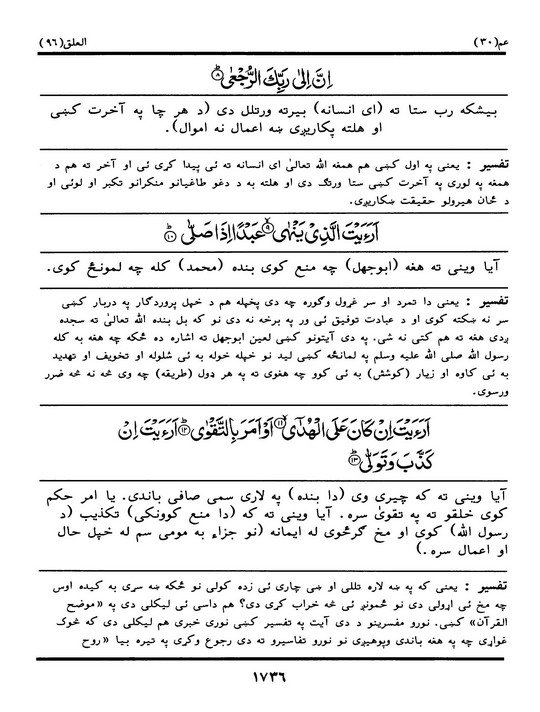 عم(۳۰) العلق(۹۶)
اِنَّ اِلٰى رَبِّكَ الرُّجْعٰى ۸
بیشکه رب ستا ته (ای انسانه) بیرته ورتلل دی (د هر چا په آخرت کښی
او هلته پکاریږی ښه اعمال نه اموال).
تفسیر : یعنی په اول کښی هم همغه الله تعالیٰ ای انسانه ته ئی پیدا کړی ئی او آخر ته هم د
همغه په لوری په آخرت کښی ستا ورتګ دی او هلته به د دغو طاغیانو منکرانو تکبر او لوئی او
د ځان هیرولو حقیقت ښکاریږی.
اَرَءَيْتَ الَّذِىْ يَنْهٰى ۹ عَبْدًا اِذَا صَلّٰى ۱۰
آیا وینی ته هغه (ابوجهل) چه منع کوی بنده (محمد) کله چه لمونځ کوی.
تفسیر : یعنی دا تمرد او سر غړول وګوره چه دی پخپله هم د خپل پروردګار په دربار کښی
سر نه ښکته کوی او د عبادت توفیق ئی ور په برخه نه دی نو که بل بنده الله تعالیٰ ته سجده
ږدی هغه ته هم کتی نه شی. په دی آیتونو کښی لعین ابوجهل ته اشاره ده ځکه چه هغه به کله
رسول الله صلی الله علیه وسلم په لمانځه کښی لید نو خپله خوله به ئی شلوله او تخویف او تهدید
به ئی کاوه او زیار (کوشش) به ئی کوو چه هغوی ته په هر ډول (طریقه) چه وی څه نه څه ضرر
ورسوی.
اَرَءَيْتَ اِنْ كَانَ عَلَى الْهُدٰى ۱۱ اَوْ اَمَرَ بِالتَّقْوٰى ۱۲ اَرَءَيْتَ اِنْ
كَذَّبَ وَتَوَلّٰى ۱۳
آیا وینی ته که چیری وی (دا بنده) په لاری سمی صافی باندی. یا امر حکم
کوی خلقو ته په تقویٰ سره. آیا وینی ته که (دا منع کوونکی) تکذیب (د
رسول الله) کوی او مخ ګرځوی له ایمانه (نو جزاء به مومی سم له خپل حال
او اعمال سره.)
تفسیر : یعنی که په ښه لاره تللی او ښی چاری ئی زده کولی نو څکه ښه سری به کیده اوس
چه مخ ئی اړولی دی نو څمونږ ئی څه خراب کړی دی؟ هم داسی ئی لیکلی دی په «موضح
القرآن» کښی. نورو مفسرینو د دی آیت په تفسیر کښی نوری خبری هم لیکلی دی که څوک
غواړی چه په هغه باندی وپوهیږی نو نورو تفاسیرو ته دی رجوع وکړی په تیره بیا «روح
۱۷۳۶